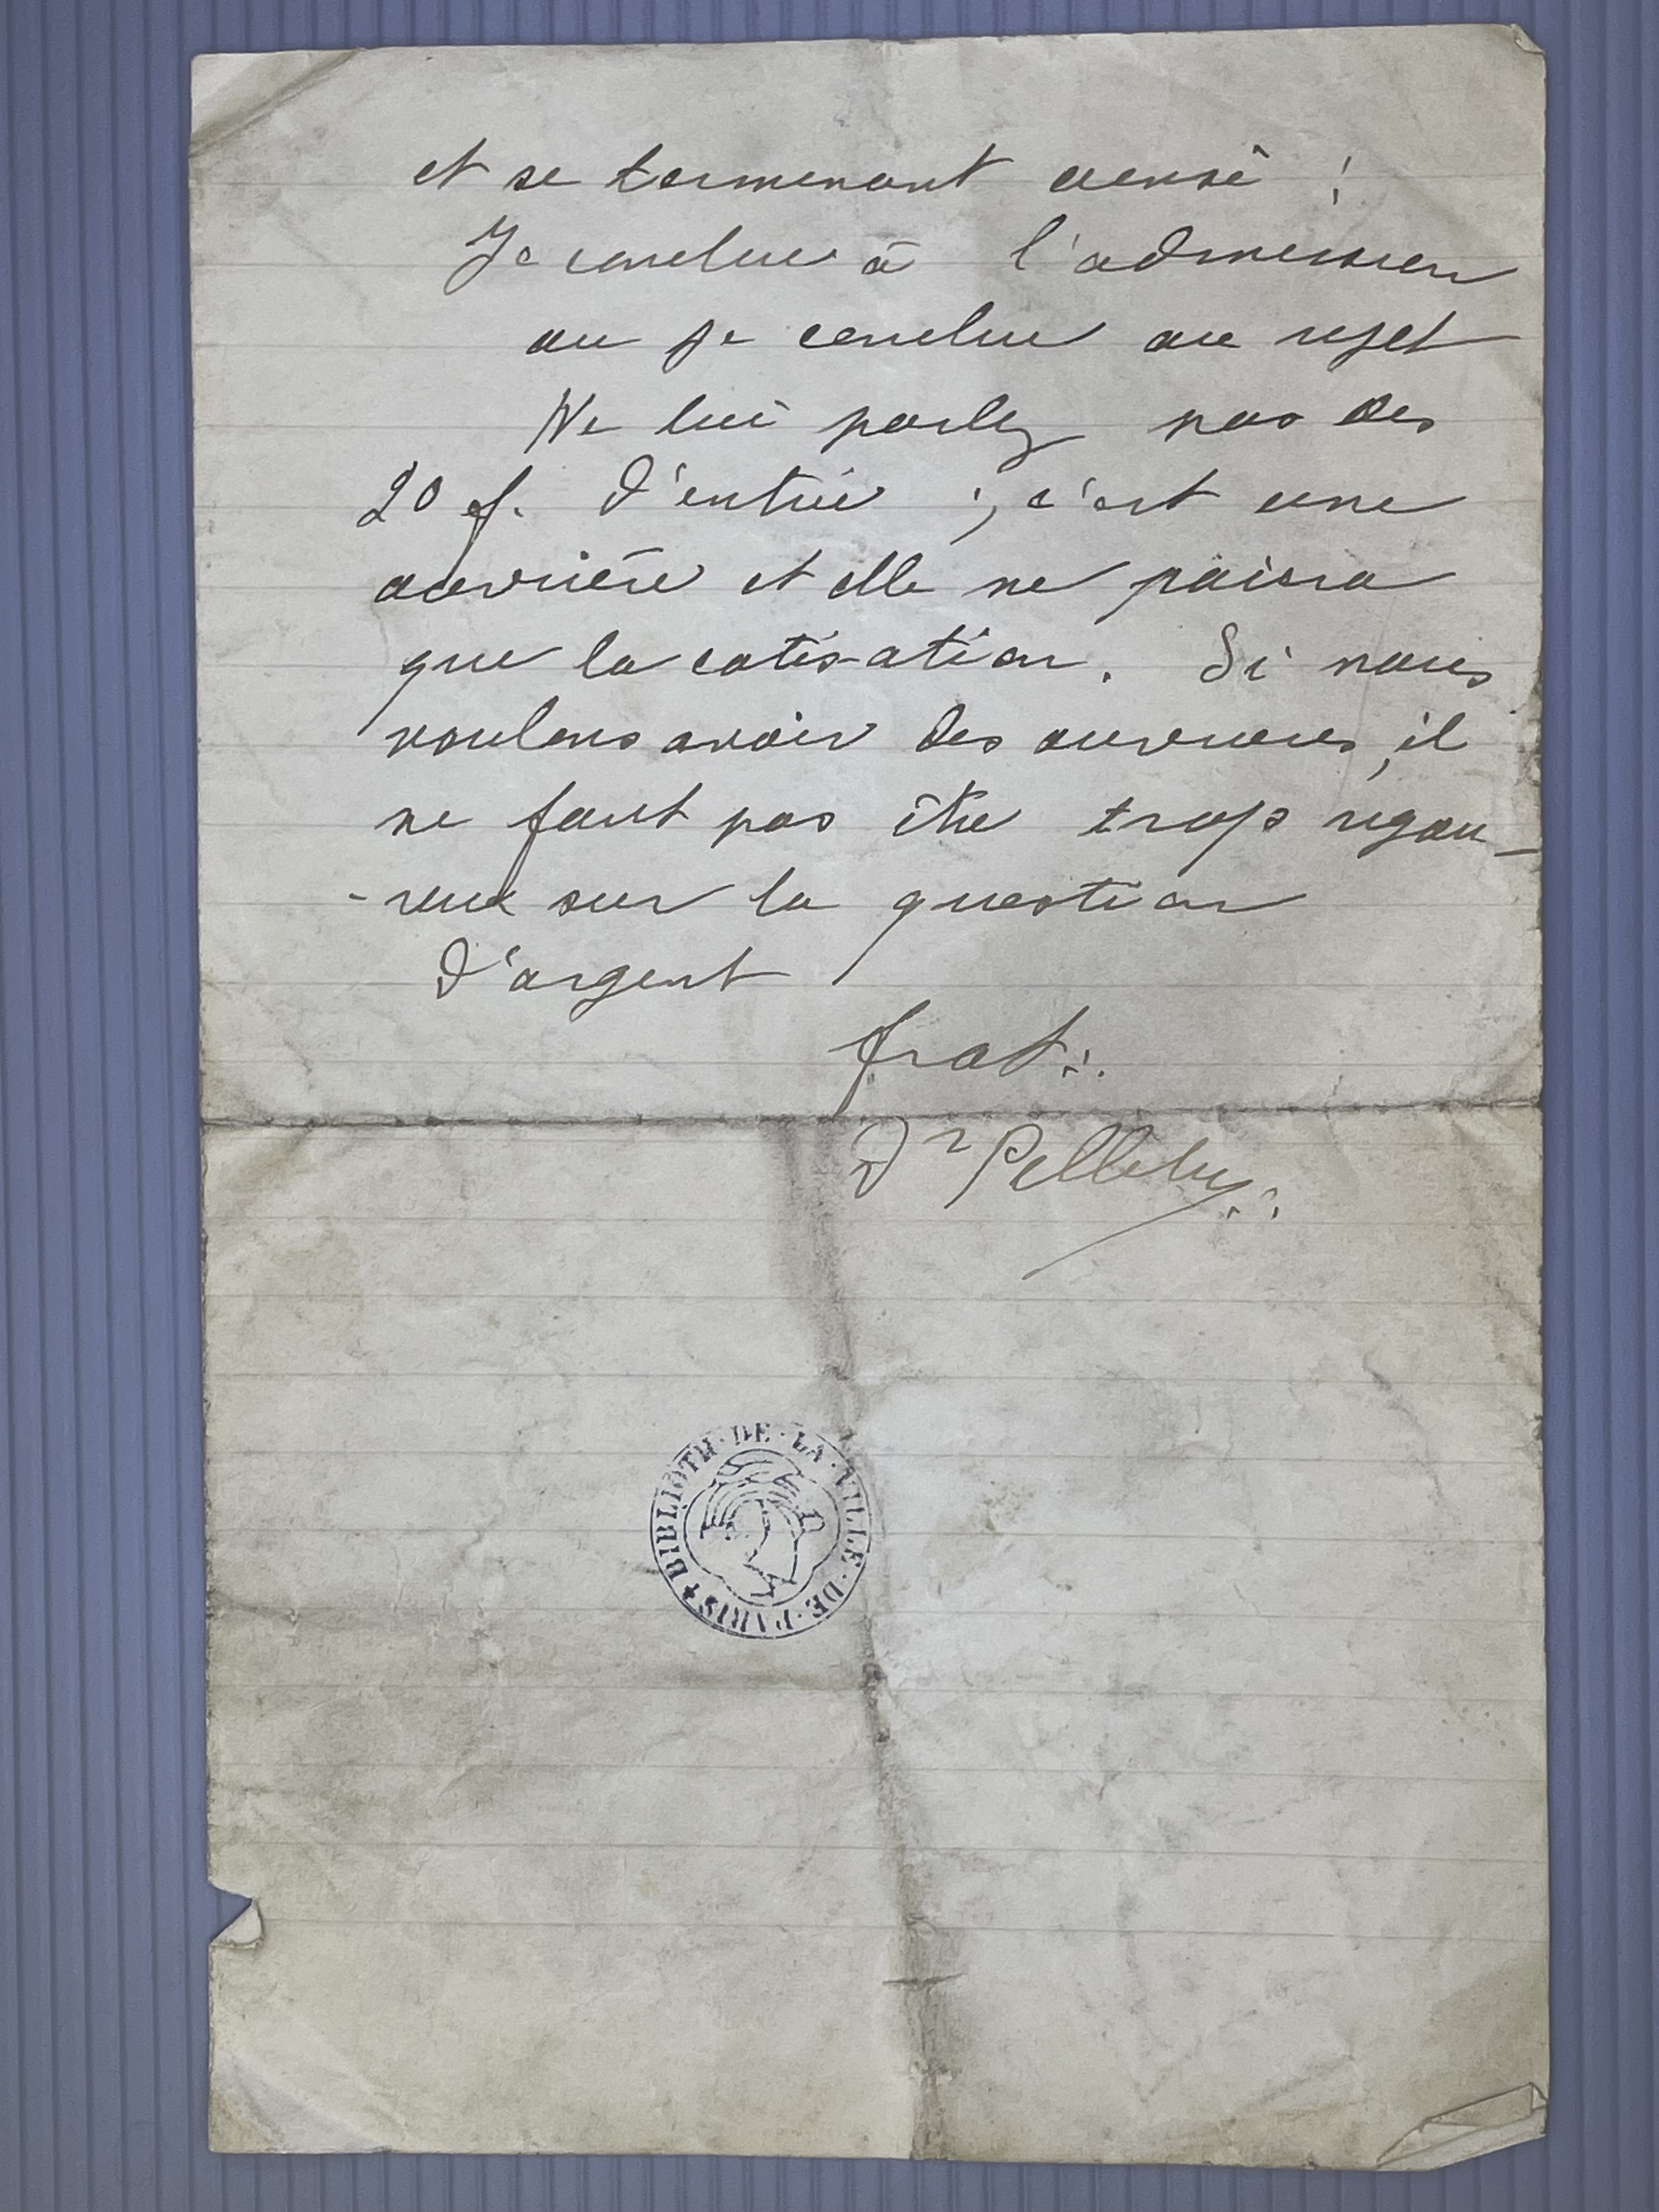 et se terminant ainsi :
Je conclue à l'admission
ou je conclue au rejet
Ne lui parlez pas des
20 f. d'entrée ; c'est une
ouvrière et elle ne paiera
que la cotisation. Si nous
voulons avoir des ouvrières, il
ne faut pas être trop rigou-
-reux sur la question
d'argent
frat∴
Dr Pelletier∴
BIBLIOTH · DE · LA · VILLE · DE · PARIS